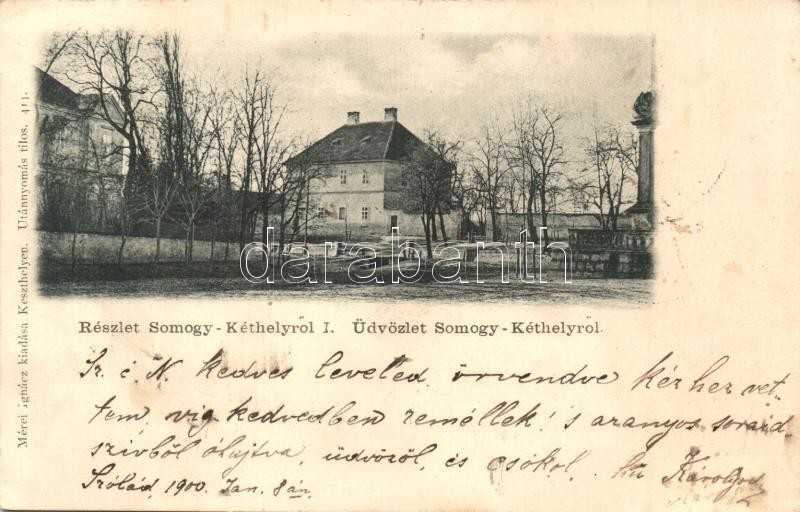 Mérei Ignácz kiadása Keszthelyen. Utánnyomás tilos. 411.
darabanth
Részlet Somogy-Kéthelyről I. Üdvözlet Somogy-Kéthelyről.
kedves leveled örvendve kézhez vet-
tem, vig kedvedben reméllek! s aranyos soraid
szivből óhajtva, üdvözöl, és csókol. hű Károlyod
Szólád, 1900. Jan. 8án